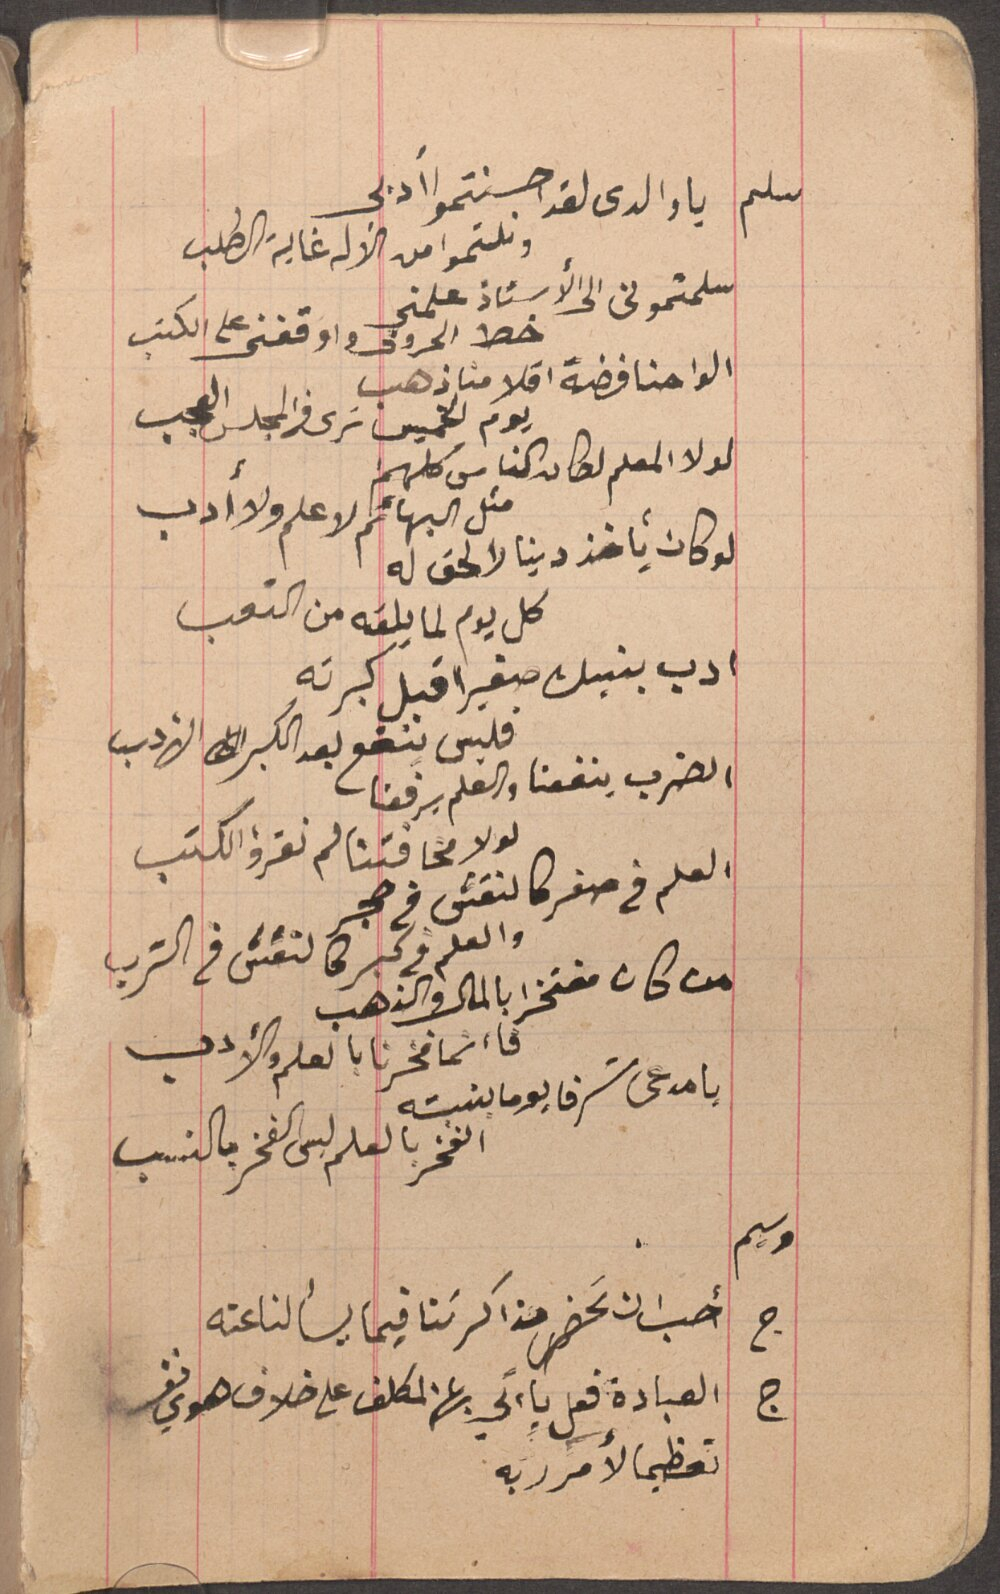 سليم يا والدى لقد احسنتموا أدبى
ونلتموا من الاله غاية الطلب
سلمتمونى الى الأستاذ علمنى
خط الحروف واوقفنى على الكتب
الواحنا فضة اقلامنا ذهب
يوم الخميس ترى فى المجلس العجب
لولا المعلم لكان الناس كلهم
مثل البهائم لا علم ولا أدب
لو كان يأخذ دينا لالحق له
كل يوم لما يلقه من التعب
ادب بنيك صغيرا قبل كبرته
فليس ينفع بعد الكبر الأدب
الضرب ينفعنا والعلم يرفعنا
لولا مخافتنا لم نقرؤ الكتب
العلم فى صغر كالنقش فى حجر
والعلم فى كبر كالنقش فى الترب
من كان مفتخرا بالمال والذهب
فاءنما فخرنا بالعلم والأدب
يا مدعى شرفا يوما بنسبته
الفخر بالعلم ليس الفخر بالنسب
وسيم
ج أحب ان تحضر مذاكرتنا فيما يسألنا عنه
ج العبادة فعل يأتي بها المكلف على خلاف هوي نفس
تعظيما لأمر ربه